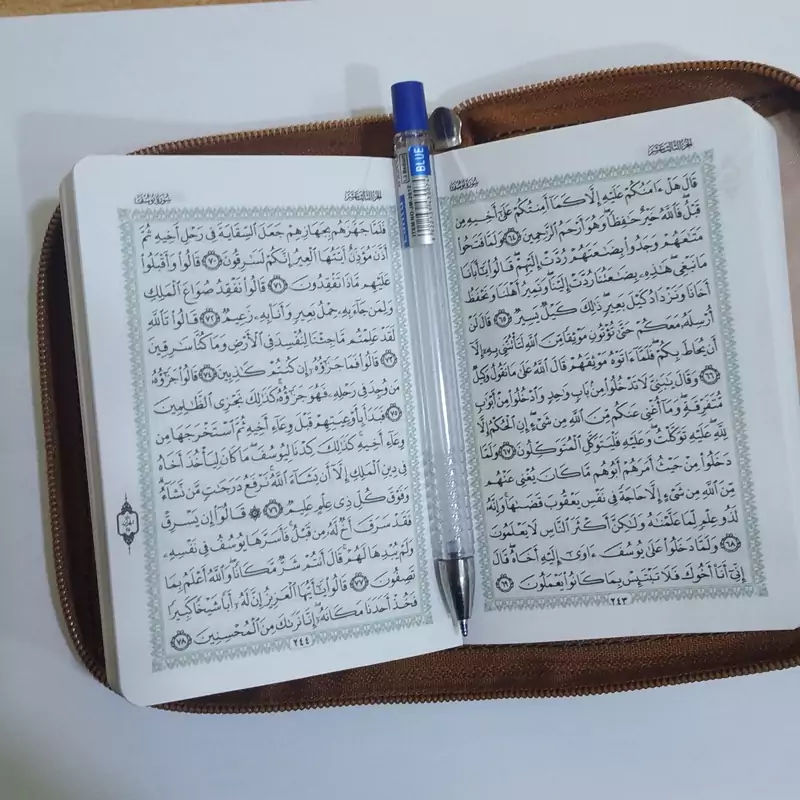 الجزء الثالث عشر
سورة يوسف
قَالَ هَلْ ءَامَنُكُمْ عَلَيْهِ إِلَّا كَمَآ أَمِنتُكُمْ عَلَىٰٓ أَخِيهِ مِن
قَبْلُ فَٱللَّهُ خَيْرٌ حَٰفِظًا وَهُوَ أَرْحَمُ ٱلرَّٰحِمِينَ ٦٤ وَلَمَّا فَتَحُوا۟
مَتَٰعَهُمْ وَجَدُوا۟ بِضَٰعَتَهُمْ رُدَّتْ إِلَيْهِمْ قَالُوا۟ يَٰٓأَبَانَا
مَا نَبْغِى هَٰذِهِۦ بِضَٰعَتُنَا رُدَّتْ إِلَيْنَا وَنَمِيرُ أَهْلَنَا وَنَحْفَظُ
أَخَانَا وَنَزْدَادُ كَيْلَ بَعِيرٍ ذَٰلِكَ كَيْلٌ يَسِيرٌ ٦٥ قَالَ لَنْ
أُرْسِلَهُۥ مَعَكُمْ حَتَّىٰ تُؤْتُونِ مَوْثِقًا مِّنَ ٱللَّهِ لَتَأْتُنَّنِى بِهِۦٓ إِلَّآ
أَن يُحَاطَ بِكُمْ فَلَمَّآ ءَاتَوْهُ مَوْثِقَهُمْ قَالَ ٱللَّهُ عَلَىٰ مَا نَقُولُ وَكِيلٌ
٦٦ وَقَالَ يَٰبَنِىَّ لَا تَدْخُلُوا۟ مِنۢ بَابٍ وَٰحِدٍ وَٱدْخُلُوا۟ مِنْ أَبْوَٰبٍ
مُّتَفَرِّقَةٍ وَمَآ أُغْنِى عَنكُم مِّنَ ٱللَّهِ مِن شَىْءٍ إِنِ ٱلْحُكْمُ إِلَّا
لِلَّهِ عَلَيْهِ تَوَكَّلْتُ وَعَلَيْهِ فَلْيَتَوَكَّلِ ٱلْمُتَوَكِّلُونَ ٦٧ وَلَمَّا
دَخَلُوا۟ مِنْ حَيْثُ أَمَرَهُمْ أَبُوهُم مَّا كَانَ يُغْنِى عَنْهُم
مِّنَ ٱللَّهِ مِن شَىْءٍ إِلَّا حَاجَةً فِى نَفْسِ يَعْقُوبَ قَضَىٰهَا وَإِنَّهُۥ
لَذُو عِلْمٍ لِّمَا عَلَّمْنَٰهُ وَلَٰكِنَّ أَكْثَرَ ٱلنَّاسِ لَا يَعْلَمُونَ
٦٨ وَلَمَّا دَخَلُوا۟ عَلَىٰ يُوسُفَ ءَاوَىٰٓ إِلَيْهِ أَخَاهُ قَالَ
إِنِّىٓ أَنَا۠ أَخُوكَ فَلَا تَبْتَئِسْ بِمَا كَانُوا۟ يَعْمَلُونَ ٦٩
٢٤٣
الجزء الثالث عشر
سورة يوسف
فَلَمَّا جَهَّزَهُم بِجَهَازِهِمْ جَعَلَ ٱلسِّقَايَةَ فِى رَحْلِ أَخِيهِ ثُمَّ
أَذَّنَ مُؤَذِّنٌ أَيَّتُهَا ٱلْعِيرُ إِنَّكُمْ لَسَٰرِقُونَ ٧٠ قَالُوا۟ وَأَقْبَلُوا۟
عَلَيْهِم مَّاذَا تَفْقِدُونَ ٧١ قَالُوا۟ نَفْقِدُ صُوَاعَ ٱلْمَلِكِ
وَلِمَن جَآءَ بِهِۦ حِمْلُ بَعِيرٍ وَأَنَا۠ بِهِۦ زَعِيمٌ ٧٢ قَالُوا۟ تَٱللَّهِ
لَقَدْ عَلِمْتُم مَّا جِئْنَا لِنُفْسِدَ فِى ٱلْأَرْضِ وَمَا كُنَّا سَٰرِقِينَ
٧٣ قَالُوا۟ فَمَا جَزَٰٓؤُهُۥٓ إِن كُنتُمْ كَٰذِبِينَ ٧٤ قَالُوا۟ جَزَٰٓؤُهُۥ
مَن وُجِدَ فِى رَحْلِهِۦ فَهُوَ جَزَٰٓؤُهُۥ كَذَٰلِكَ نَجْزِى ٱلظَّٰلِمِينَ
٧٥ فَبَدَأَ بِأَوْعِيَتِهِمْ قَبْلَ وِعَآءِ أَخِيهِ ثُمَّ ٱسْتَخْرَجَهَا مِن
وِعَآءِ أَخِيهِ كَذَٰلِكَ كِدْنَا لِيُوسُفَ مَا كَانَ لِيَأْخُذَ أَخَاهُ
فِى دِينِ ٱلْمَلِكِ إِلَّآ أَن يَشَآءَ ٱللَّهُ نَرْفَعُ دَرَجَٰتٍ مَّن نَّشَآءُ
وَفَوْقَ كُلِّ ذِى عِلْمٍ عَلِيمٌ ٧٦ ۞ قَالُوٓا۟ إِن يَسْرِقْ
فَقَدْ سَرَقَ أَخٌ لَّهُۥ مِن قَبْلُ فَأَسَرَّهَا يُوسُفُ فِى نَفْسِهِۦ
وَلَمْ يُبْدِهَا لَهُمْ قَالَ أَنتُمْ شَرٌّ مَّكَانًا وَٱللَّهُ أَعْلَمُ بِمَا
تَصِفُونَ ٧٧ قَالُوا۟ يَٰٓأَيُّهَا ٱلْعَزِيزُ إِنَّ لَهُۥٓ أَبًا شَيْخًا كَبِيرًا
فَخُذْ أَحَدَنَا مَكَانَهُۥٓ إِنَّا نَرَىٰكَ مِنَ ٱلْمُحْسِنِينَ ٧٨
٢٤٤
BLUE